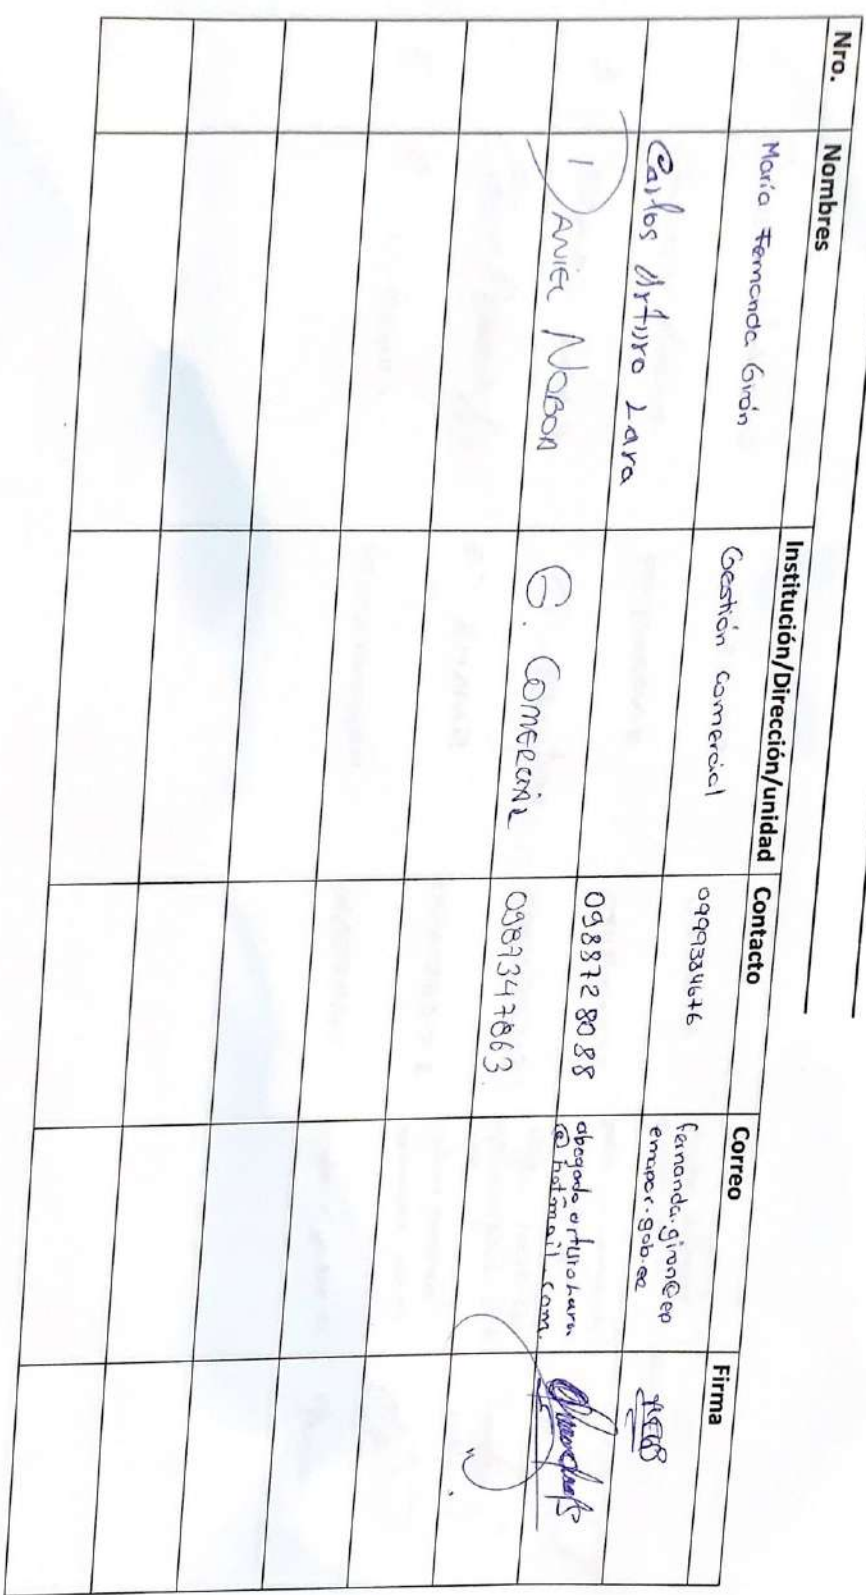 Nro. Nombres Institución/Dirección/unidad Contacto Correo Firma
María Fernanda Girón Gestión comercial 0999334676 fernanda.giron@ep
emapar.gob.ec
Carlos Arturo Lara 0988728088 abogadoarturolara
@hotmail.com.
DANIEL NOBOA G. COMERCIAL 0987347863.